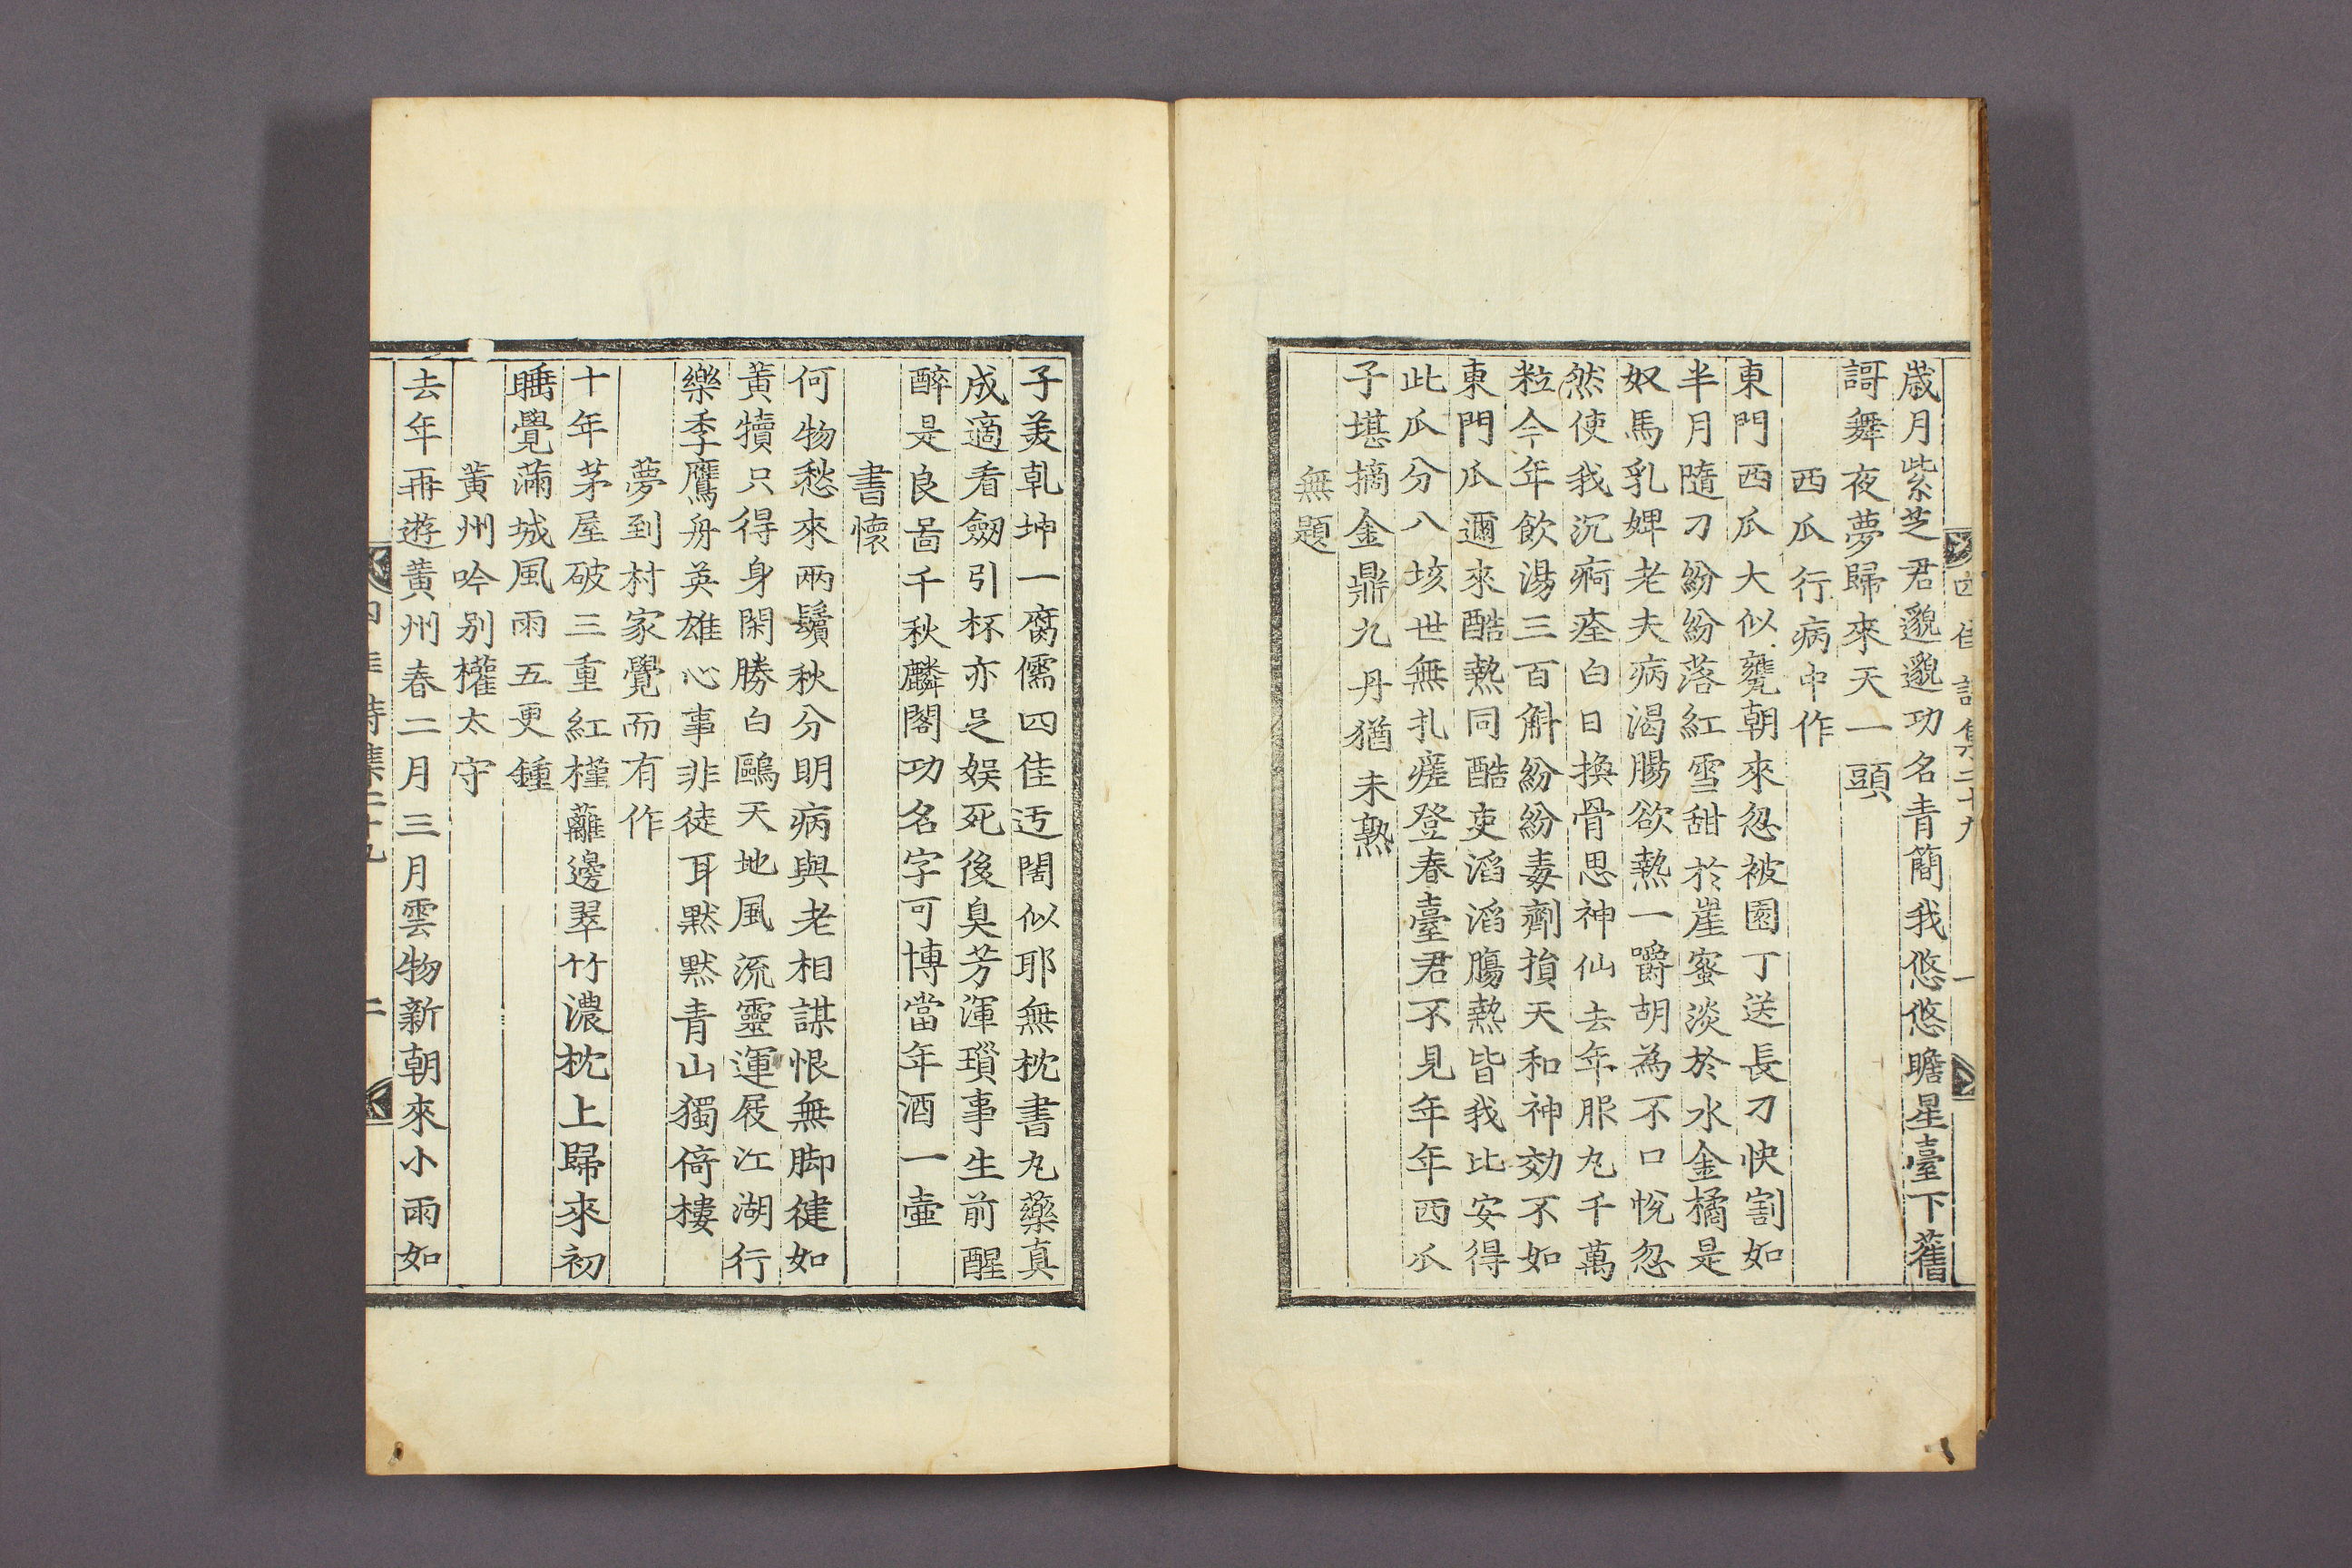 四佳詩集二十九　一
歲月紫芝君邈邈功名青簡我悠悠瞻星臺下舊
謌舞夜夢歸來天一頭
西瓜行病中作
東門西瓜大似甕朝來忽被園丁送長刀快割如
半月隨刀紛紛落紅雪甜於崖蜜淡於水金橘是
奴馬乳婢老夫病渴腸欲熱一嚼胡為不口悅忽
然使我沉痾痊白日換骨思神仙去年服丸千萬
粒今年飲湯三百斛紛紛毒劑損天和神効不如
東門瓜邇來酷熱同酷吏滔滔腸熱皆我比安得
此瓜分八垓世無札瘥登春臺君不見年年西瓜
子堪摘金鼎九丹猶未熟
無題
子美乹坤一腐儒四佳迂闊似耶無枕書丸藥真
成適看劒引杯亦足娛死後臭芳渾瑣事生前醒
醉是良啚千秋麟閣功名字可博當年酒一壷
書懷
何物愁來兩鬢秋分明病與老相謀恨無脚健如
黃犢只得身閑勝白鷗天地風流靈運屐江湖行
樂季鷹舟英雄心事非徒耳黙黙青山獨倚樓
夢到村家覺而有作
十年茅屋破三重紅槿蘺邊翠竹濃枕上歸來初
睡覺滿城風雨五更鍾
黃州吟別權太守
去年再遊黃州春二月三月雲物新朝來小雨如
四佳詩集二十九　二